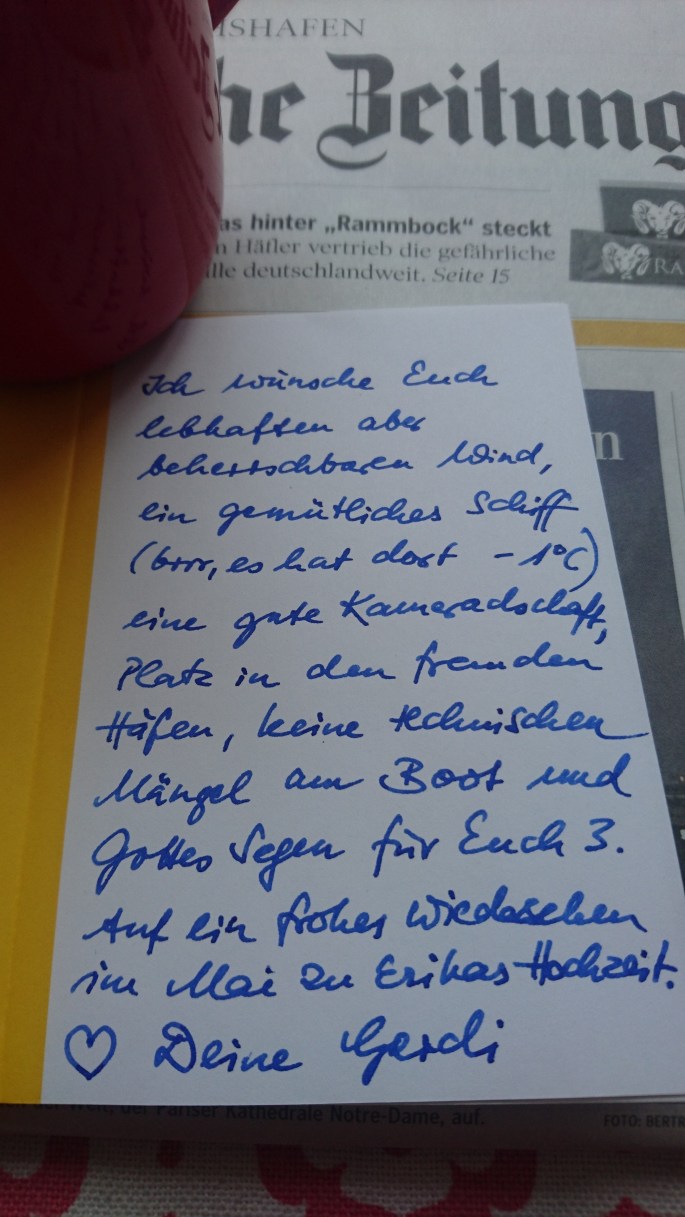 ISHAFEN
he Zeitung
as hinter „Rammbock“ steckt
n Häfler vertrieb die gefährliche
lle deutschlandweit. Seite 15
RA
n
Ich wünsche Euch
lebhaften aber
beherrschbaren Wind,
ein gemütliches Schiff
(brrr, es hat dort -1°C)
eine gute Kameradschaft,
Platz in den fremden
Häfen, keine technischen
Mängel am Boot und
Gottes Segen für Euch 3.
Auf ein frohes Wiedersehen
im Mai zu Erikas Hochzeit.
♡ Deine Gerdi
der Welt, der Pariser Kathedrale Notre-Dame, auf.
FOTO: BERTR